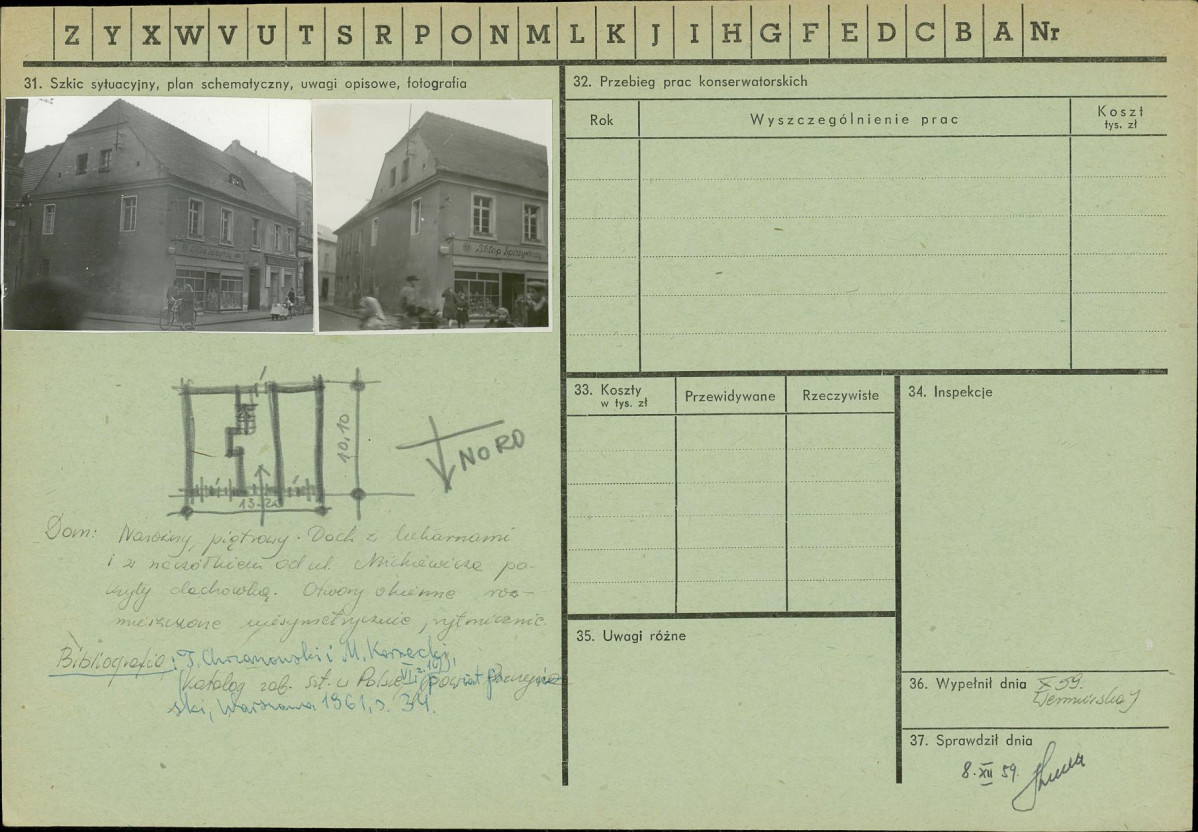 Z Y X W V U T S R P O N M L K J I H G F E D C B A Nr
31. Szkic sytuacyjny, plan schematyczny, uwagi opisowe, fotografia
Sklep Spożywczy
10,10
13.20
NORD
Dom: Narożny, piętrowy. Dach z lukarnami
i z naczółkiem od ul. Mickiewicza po-
kryty dachówką. Otwory okienne roz-
mieszczone niesymetrycznie, rytmicznie.
Bibliografia: T. Chrzanowski i M. Kornecki,
Katalog zab. szt. w Polsce, powiat
ski, Warszawa 1961, s. 34.
32. Przebieg prac konserwatorskich
Rok
Wyszczególnienie prac
Koszt
tys. zł
33. Koszty
w tys. zł
Przewidywane
Rzeczywiste
34. Inspekcje
35. Uwagi różne
36. Wypełnił dnia X 59.
37. Sprawdził dnia
8. XII 59.